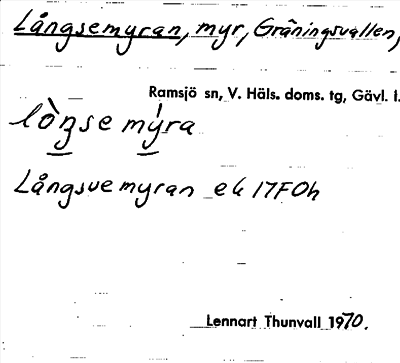 Långsemyran, myr, Gråningsvallen,
Ramsjö sn, V. Häls. doms. tg, Gävl. l.
lòŋse mýra
Långsvemyran ek 17F0h
Lennart Thunvall 1970.